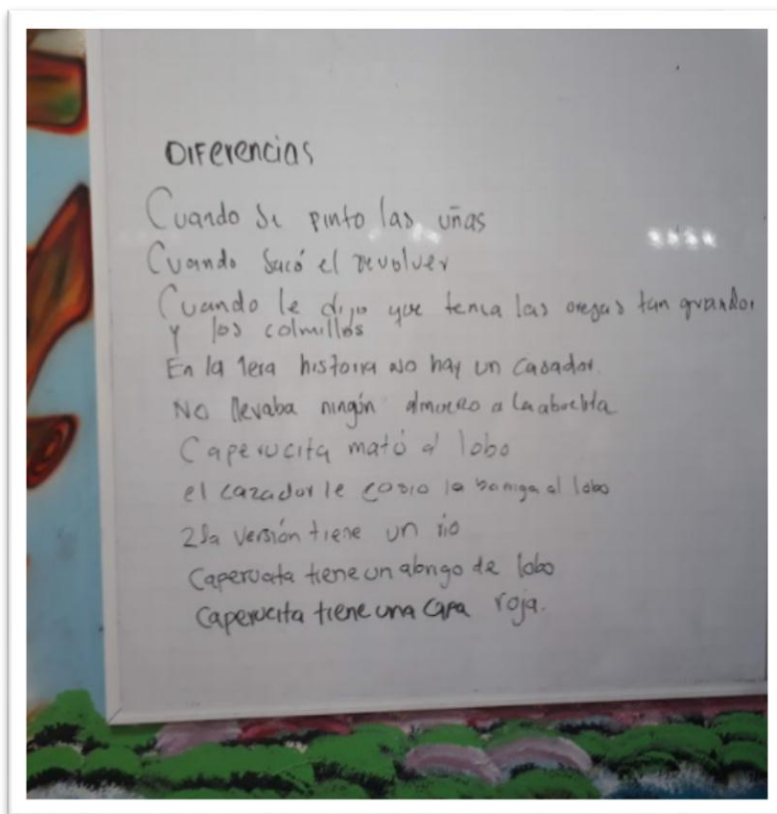 DIFerencias
Cuando se pinto las uñas
Cuando Sacó el revolver
Cuando le dijo que tenia las orejas tan grandes
y los colmillos
En la 1era historia no hay un casador.
No llevaba ningún almuerzo a la abuelita
Caperucita mató al lobo
el cazador le cosio la barriga al lobo
2da versión tiene un rio
Caperucita tiene un abrigo de lobo
Caperucita tiene una capa roja.